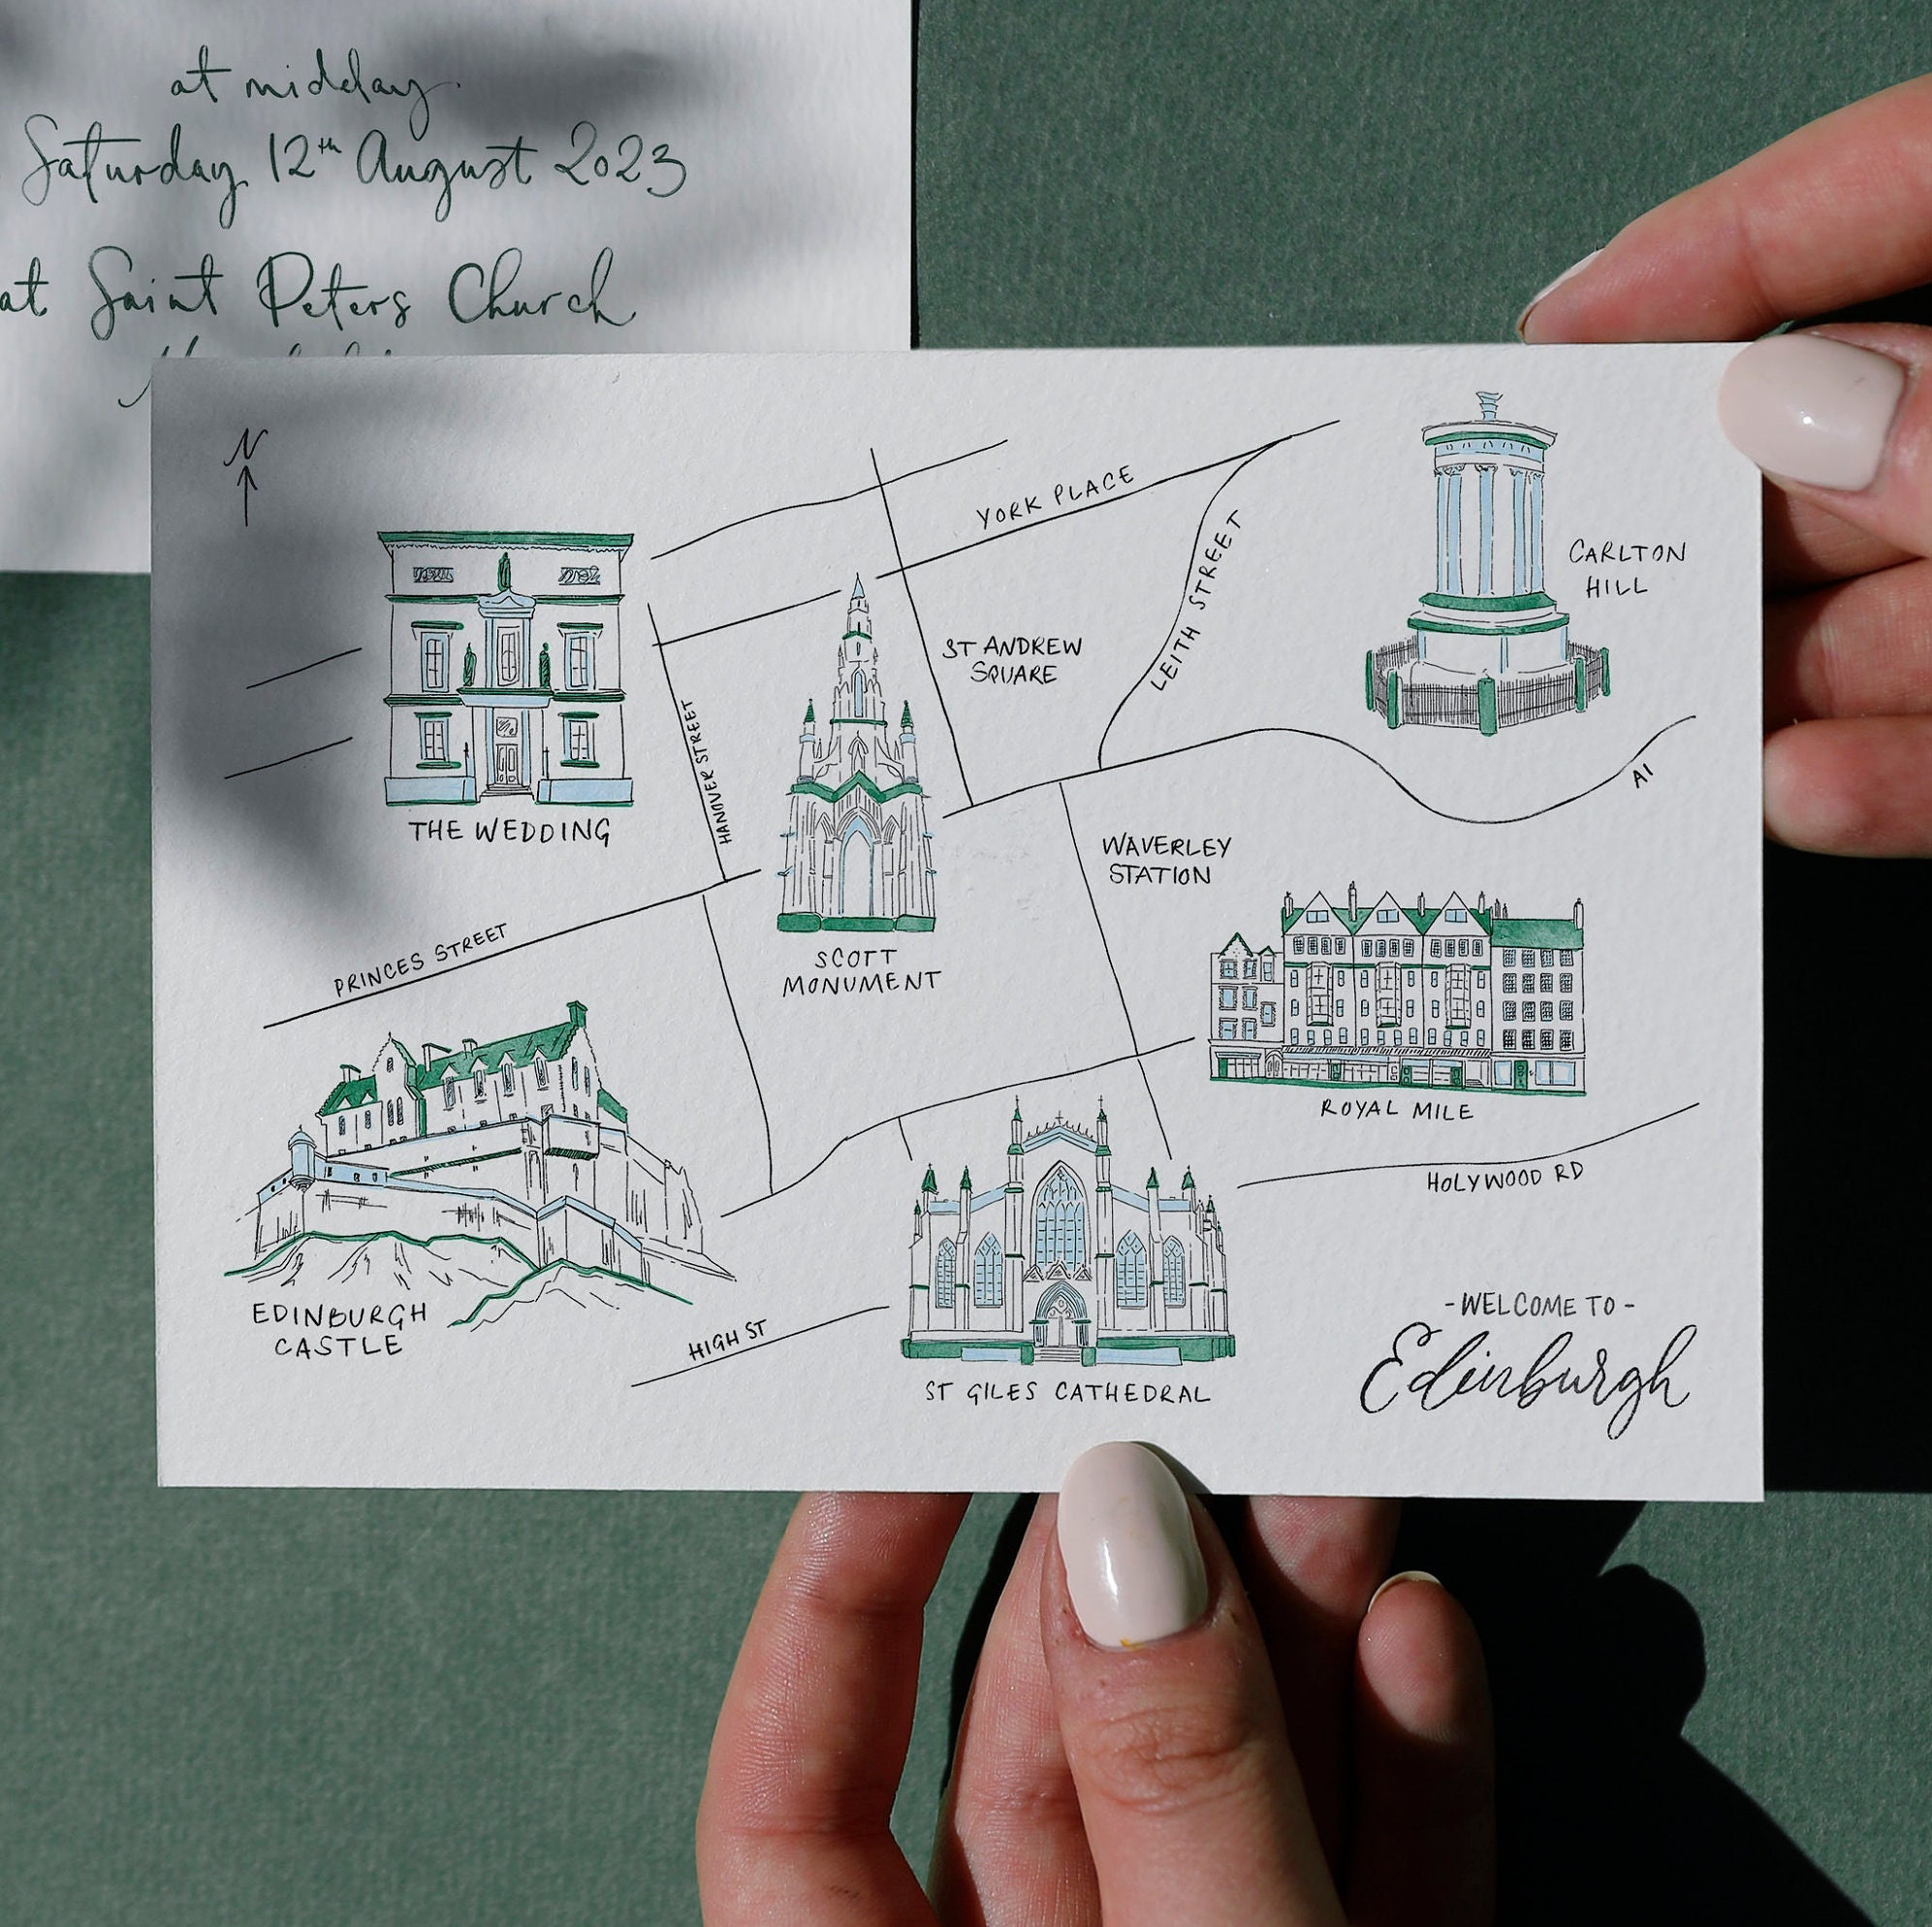 at midday
Saturday 12th August 2023
at Saint Peters Church
N
YORK PLACE
LEITH STREET
CARLTON
HILL
ST ANDREW
SQUARE
HANOVER STREET
A1
THE WEDDING
WAVERLEY
STATION
PRINCES STREET
SCOTT
MONUMENT
ROYAL MILE
HOLYWOOD RD
EDINBURGH
CASTLE
HIGH ST
ST GILES CATHEDRAL
- WELCOME TO -
Edinburgh